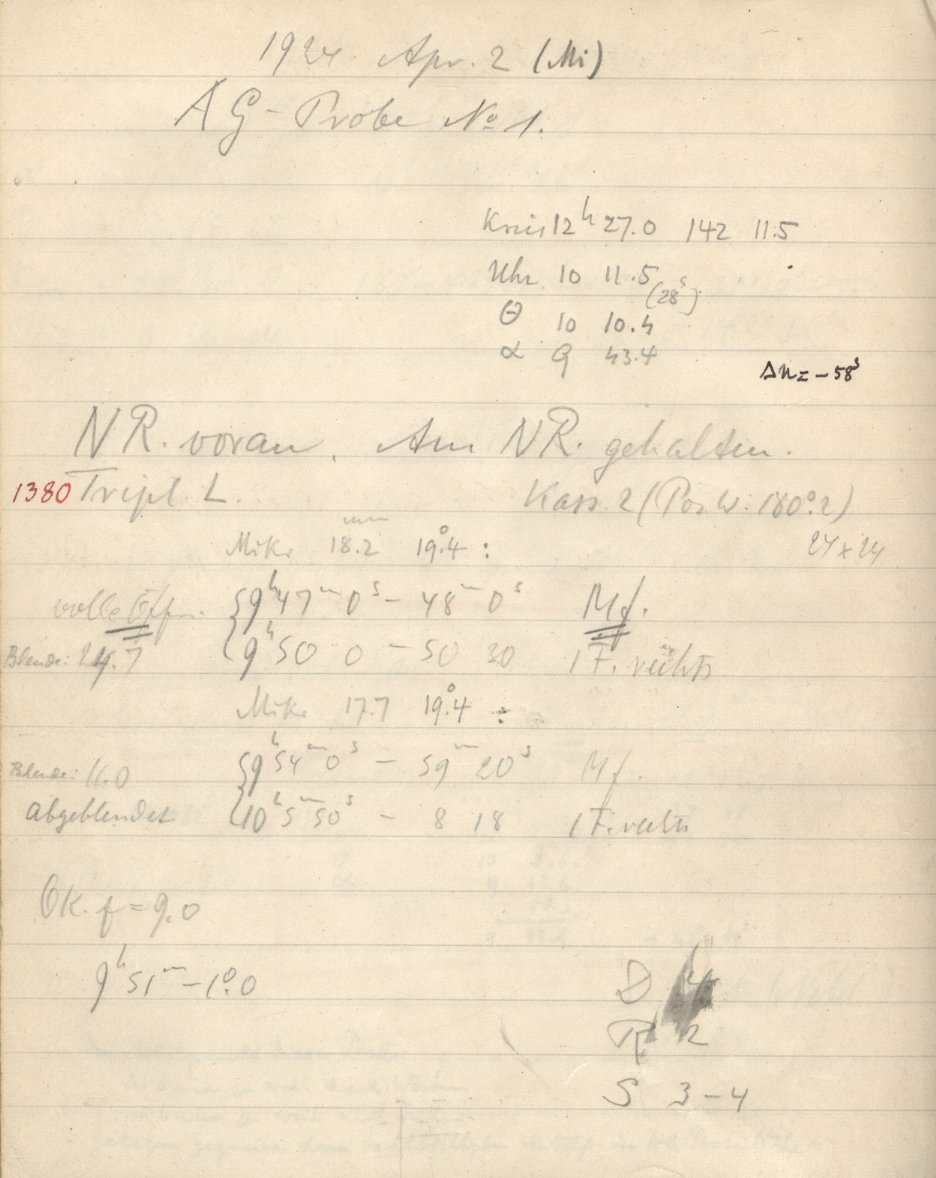 1924 Apr. 2 (Mi)
AG-Probe No 1.
Kreis 12h 27.0 142 11.5
Uhr 10 11.5 (28s)
Θ 10 10.4
α 9 43.4
Δu = -58s
NR. voran. Am NR. gehalten.
1380 Tripl. L. Kass. 2 (Pos.W. 180°.2)
Mikr 18.2 mm 19°.4 : 24x24
volle Öffn. 9h 47m 0s - 48m 0s Mf.
Blende: 24.7 9h 50 0 - 50 20 1 F. rechts
Mikr 17.7 19°.4 :
Blende: 11.0 9h 54m 0s - 59m 20s Mf.
abgeblendet 10h 5m 50s - 8 18 1 F. rechts
Ok. f = 9.0
9h 51m -1°.0
D
R 2
S 3-4